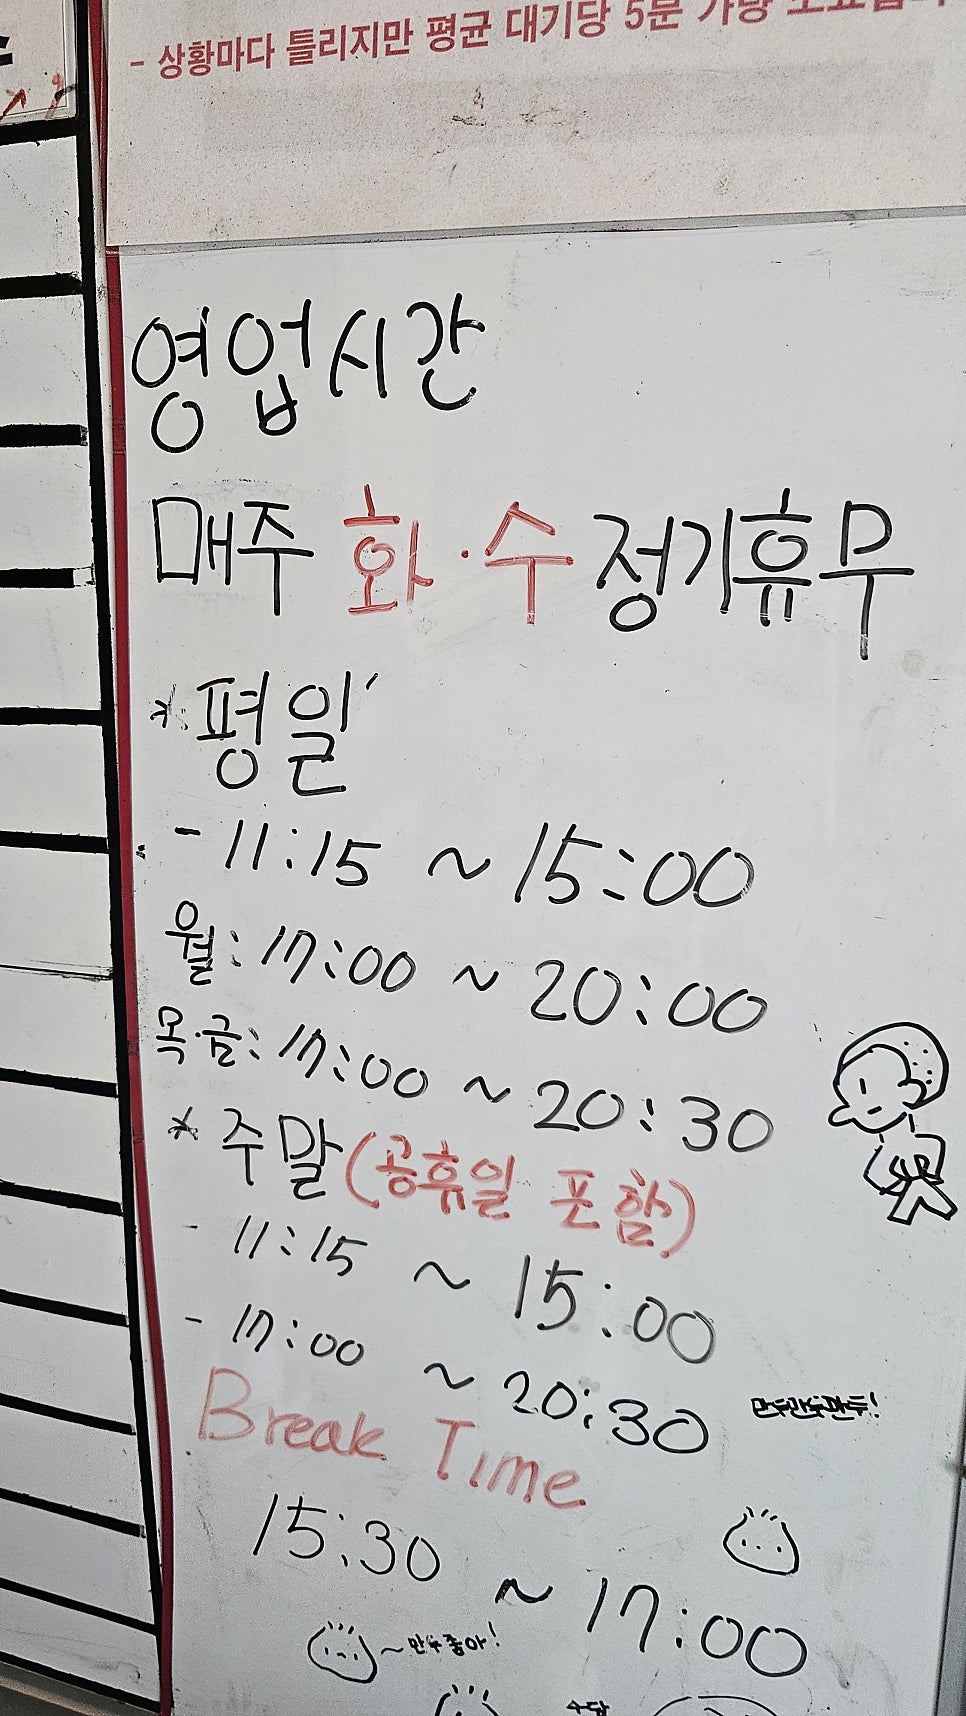 - 상황마다 틀리지만 평균 대기당 5분 가량
영업시간
매주 화·수 정기휴무
* 평일
- 11:15 ~ 15:00
월: 17:00 ~ 20:00
목·금: 17:00 ~ 20:30
* 주말 (공휴일 포함)
- 11:15 ~ 15:00
- 17:00 ~ 20:30
만두만두만두!
Break Time
15:30 ~ 17:00
~만두좋아!